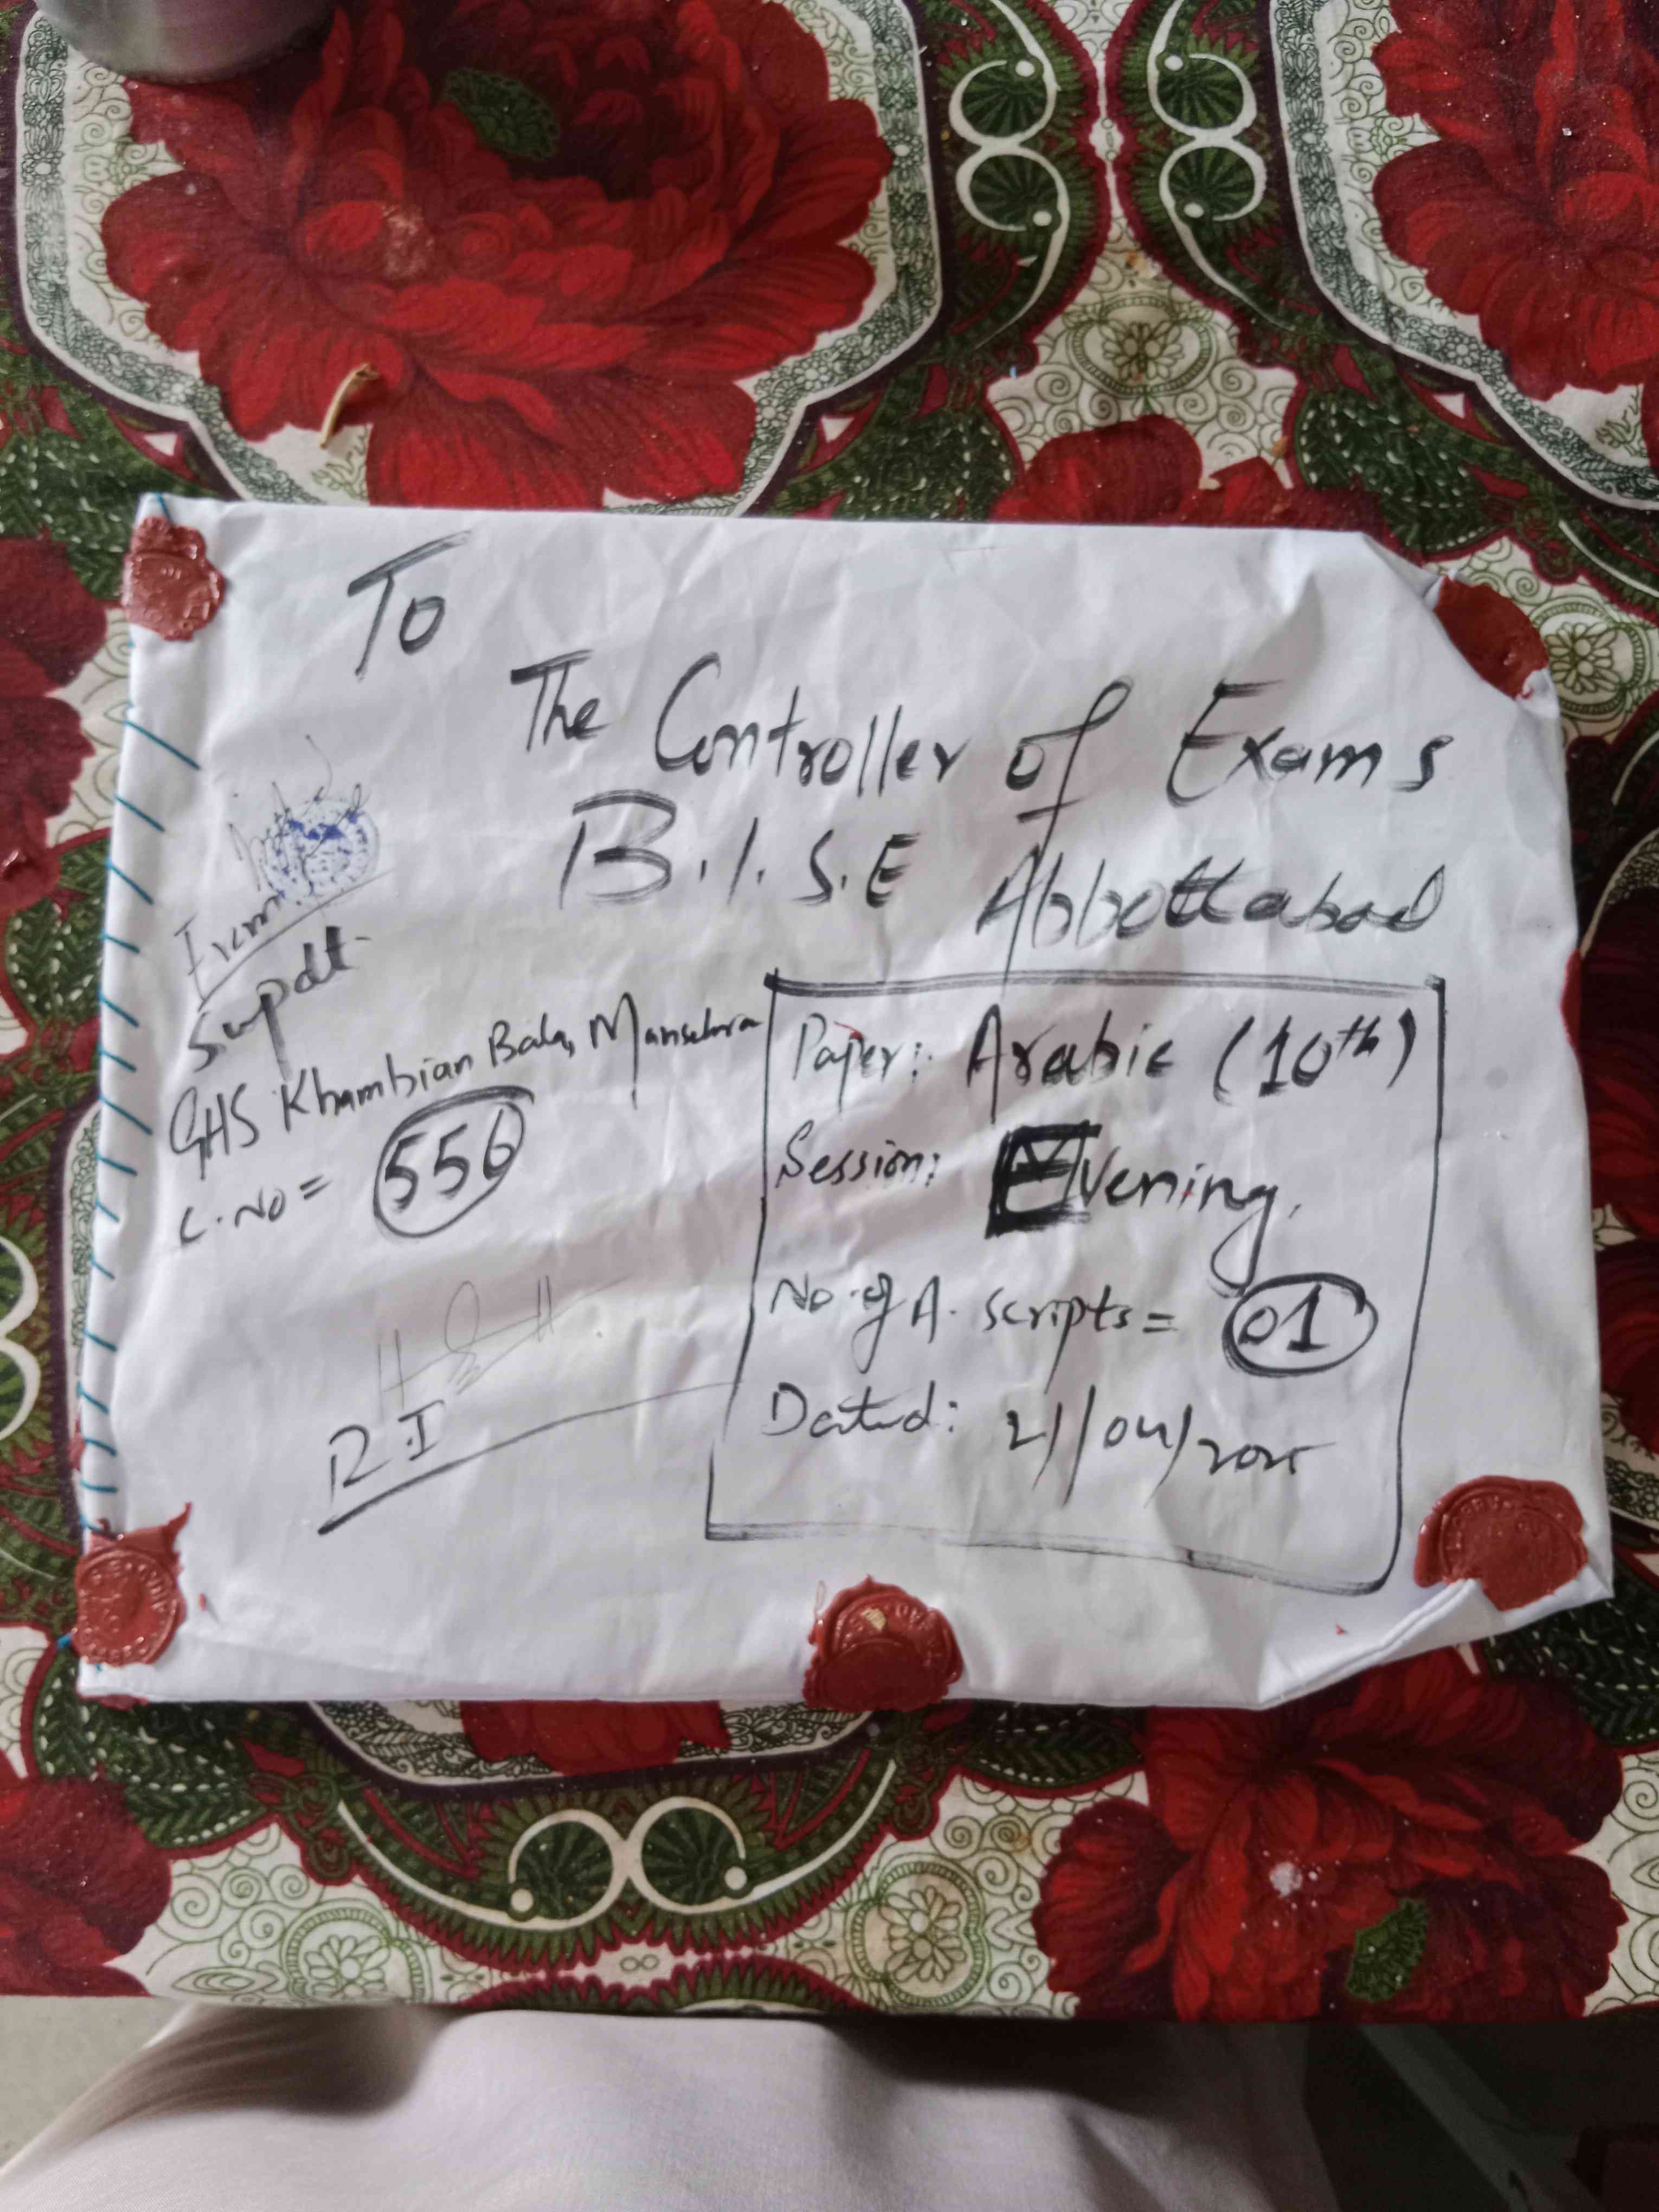 To
The Controller of Exams
B.I.S.E Abbottabad
From
Supdt.
GHS Khambian Bala, Mansehra
C.No = 556
R.I
Paper: Arabic (10th)
Session: Evening.
No. of A. scripts = 01
Dated: 21/04/2025